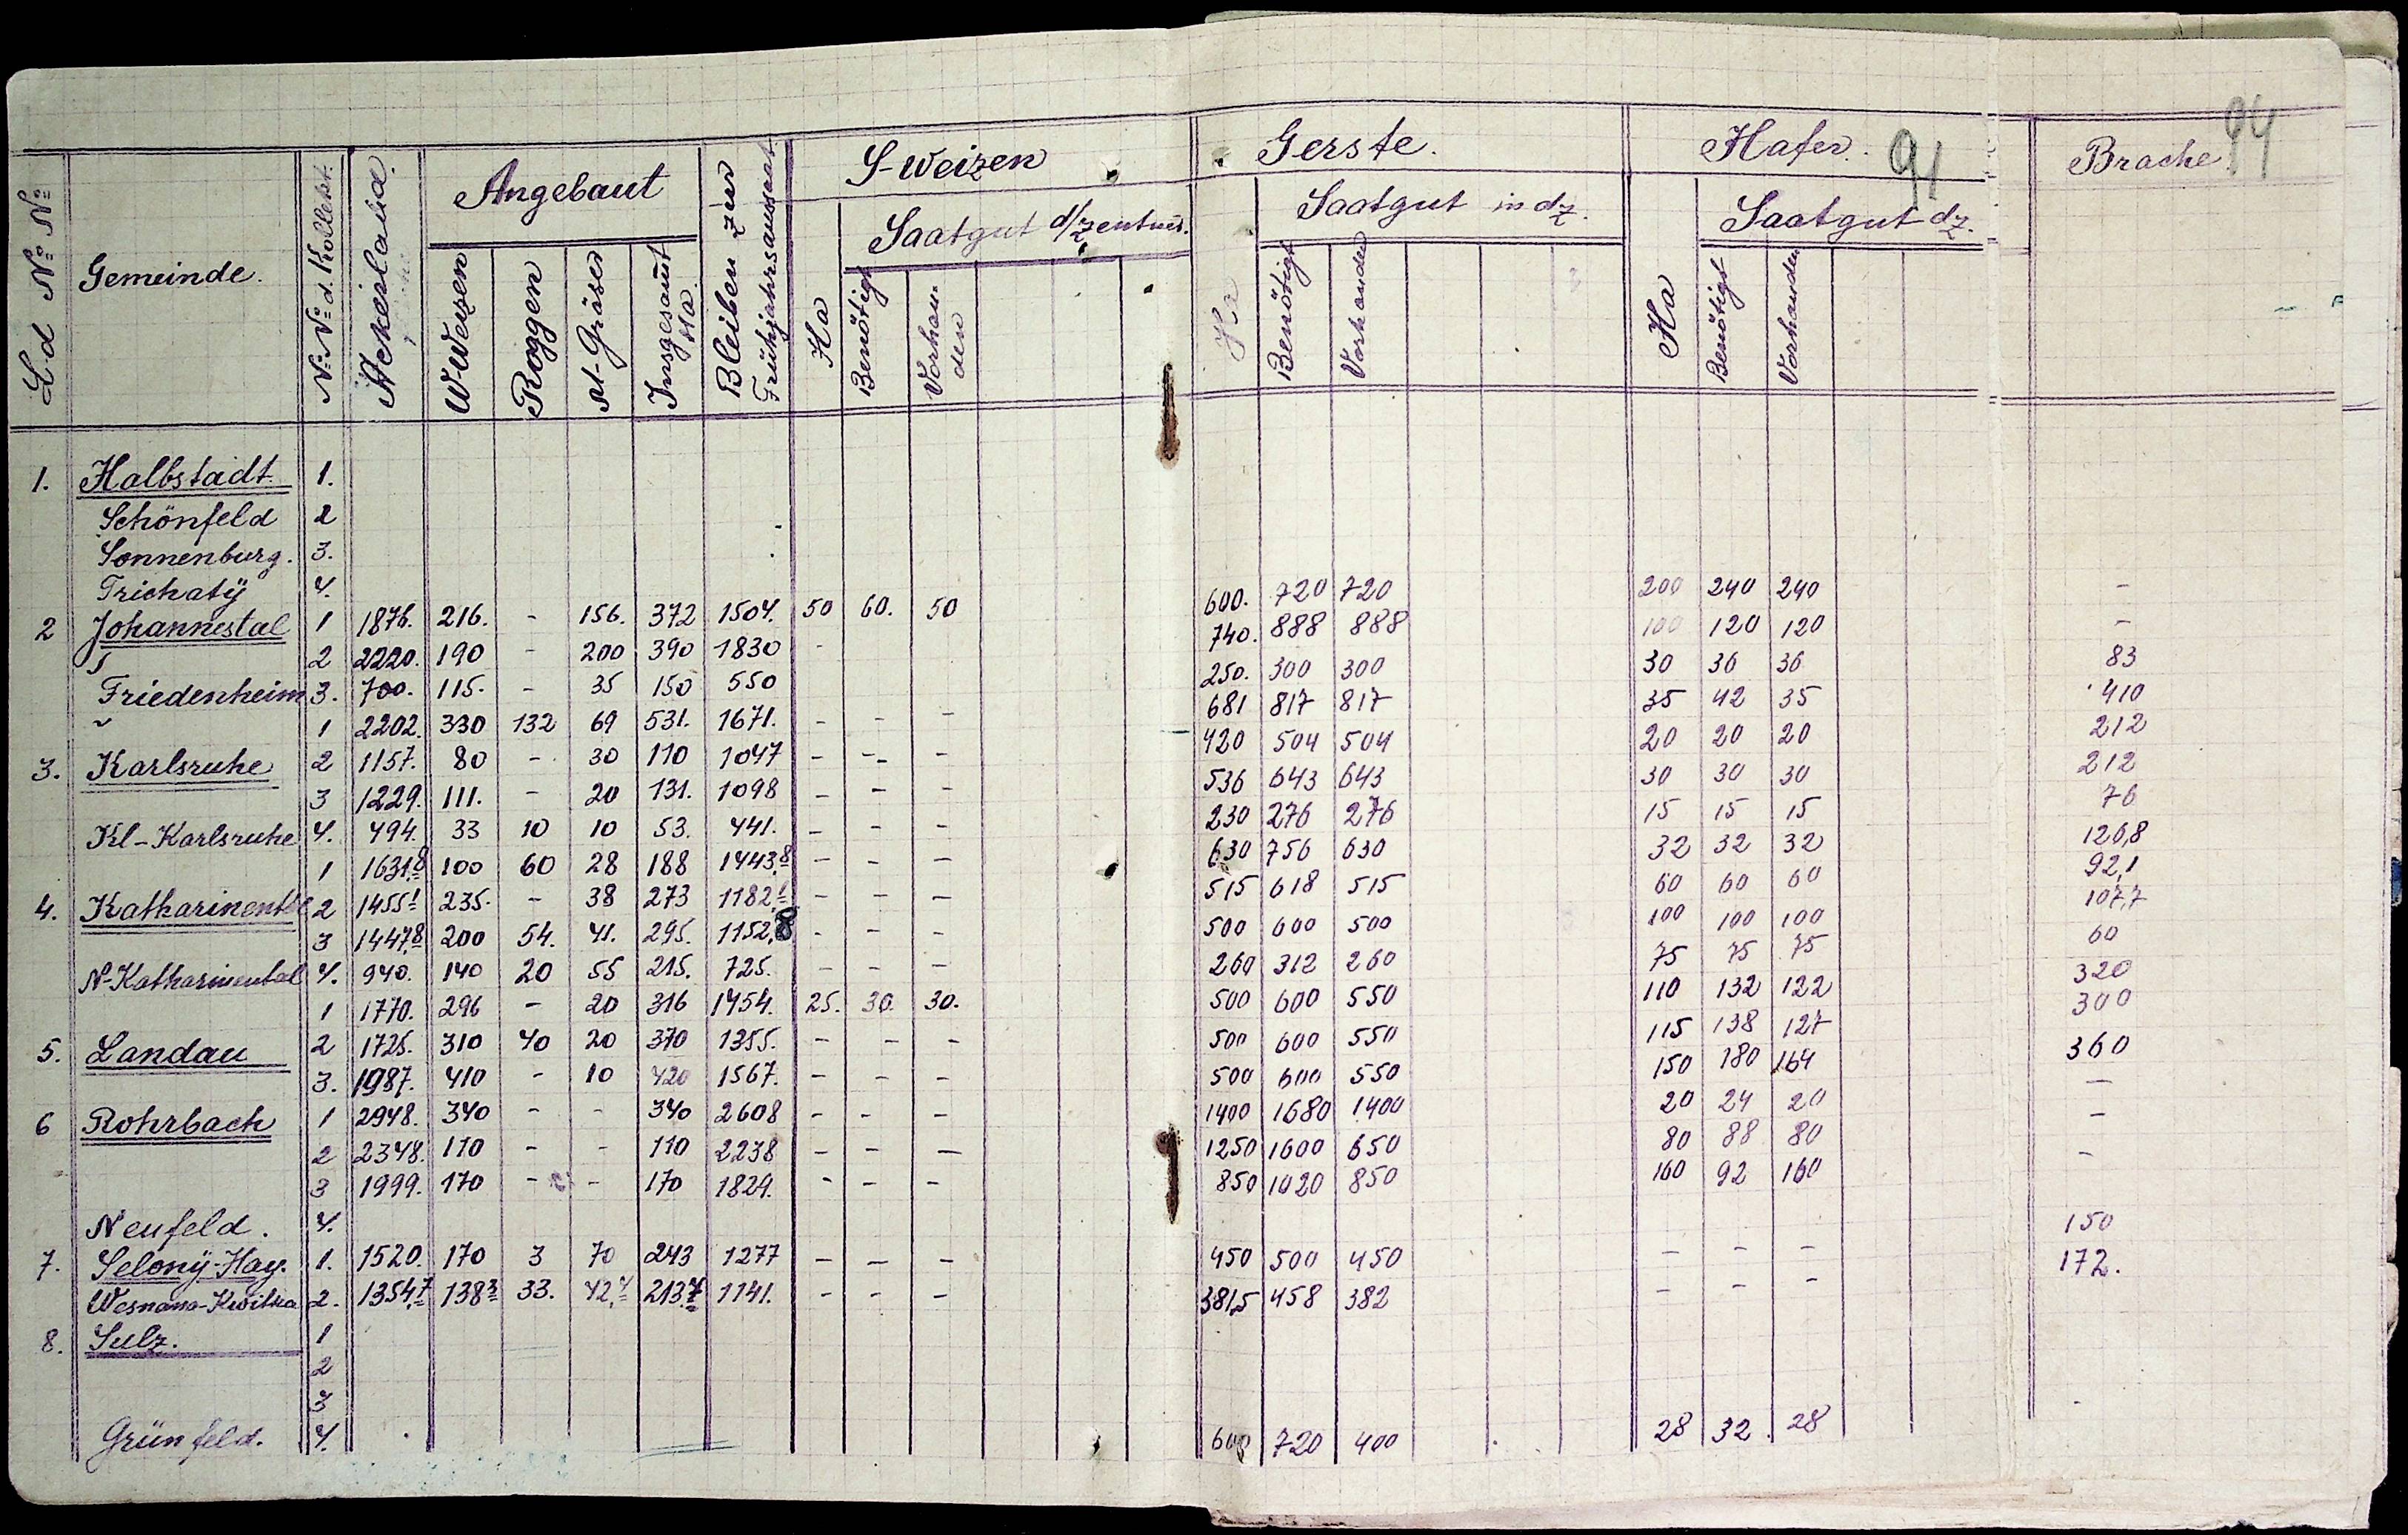 94
91
Ld Nº Nº | Gemeinde. | Nº Nº d. Kollekt. | Ackerland. | Angebaut | Bleiben zur Frühjahrsaussaat | S-Weizen | Gerste. | Hafer. | Brache
W-Weizen | Roggen | M-Gräser | Insgesamt Ha. | Ha | Saatgut d/zentner. | Ha | Saatgut in dz. | Ha | Saatgut dz.
Benötigt | Vorhanden | Benötigt | Vorhanden | Benötigt | Vorhanden
1. Halbstadt 1.
Schönfeld 2
Sonnenburg. 3.
Trichatÿ 4. 600. 720 720 200 240 240 -
2 Johannestal 1 1876. 216. - 156. 372 1504. 50 60. 50 740. 888 888 100 120 120 -
2 2220. 190 - 200 390 1830 - 250. 300 300 30 36 36 83
Friedenheim 3. 700. 115. - 35 150 550 681 817 817 35 42 35 410
1 2202. 330 132 69 531. 1671. - - - 420 504 504 20 20 20 212
3. Karlsruhe 2 1157. 80 - 30 110 1047 - - - 536 643 643 30 30 30 212
3 1229. 111. - 20 131. 1098 - - - 230 276 276 15 15 15 76
Kl-Karlsruhe 4. 494. 33 10 10 53. 441. - - - 630 756 630 32 32 32 126,8
1 1631,8 100 60 28 188 1443,8 - - - 515 618 515 60 60 60 92,1
4. Katharinental 2 1455,1 235. - 38 273 1182,1 - - - 500 600 500 100 100 100 107,7
3 1447,8 200 54. 41. 295. 1152,8 - - - 260 312 260 75 75 75 60
N-Katharinental 4. 940. 140 20 55 215. 725. - - - 500 600 550 110 132 122 320
1 1770. 296 - 20 316 1454. 25. 30. 30. 500 600 550 115 138 127 300
5. Landau 2 1725. 310 40 20 370 1355. - - - 500 600 550 150 180 164 360
3. 1987. 410 - 10 420 1567. - - - 1400 1680 1400 20 24 20 -
6 Rohrbach 1 2948. 340 - - 340 2608 - - - 1250 1600 650 80 88 80 -
2 2348. 110 - - 110 2238 - - - 850 1020 850 160 92 160 -
3 1999. 170 - - 170 1829. - - -
Neufeld. 4. 150
7. Selonÿ-Hay. 1. 1520. 170 3 70 243 1277 - - - 450 500 450 - - - 172.
Wesnana-Kwitka 2. 1354,7 138,3 33. 42,4 213,7 1141. - - - 381,5 458 382 - - -
8. Sulz. 1
2
3
Grünfeld. 4. 600 720 400 28 32 28